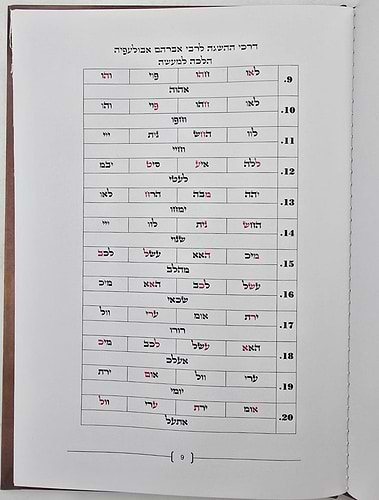 דרכי ההשגה לרבי אברהם אבולעפיה
הלכה למעשה
9. לאו חהו פוי והו
אהוה
10. לאו חהו פוי והו
וחפו
11. לוו החש נית ייי
וחיי
12. ללה איע סיט יבמ
לעטי
13. יהה מבה הרח לאו
ימחו
14. החש נית לוו ייי
שנוי
15. מיכ האא עשל לכב
מהלב
16. עשל לכב האא מיכ
שכאי
17. ירת אומ ערי וול
רורו
18. האא עשל לכב מיכ
אעלכ
19. ערי וול אום ירת
יומי
20. אומ ירת ערי וול
אתעל
9